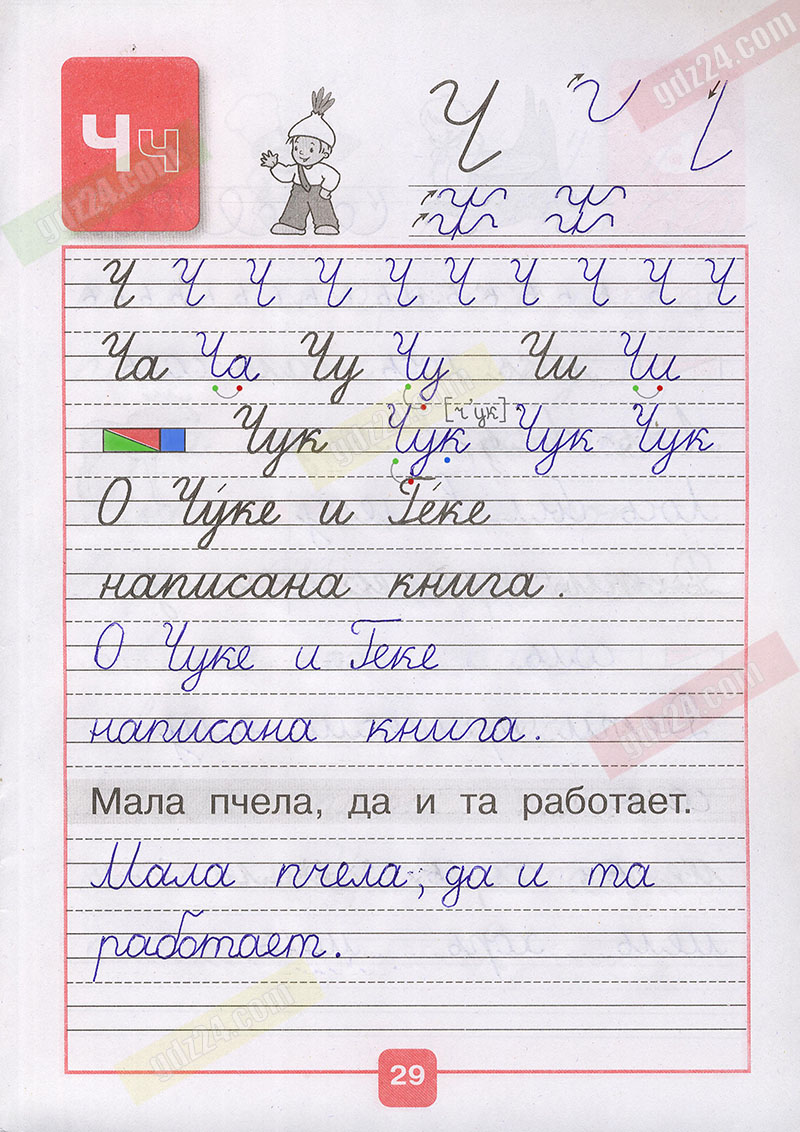 Чч
Ч
gdz24.com
gdz24.com
Ч Ч Ч Ч Ч Ч Ч Ч Ч Ч
Ча Ча Чу Чу Чи Чи
gdz24.com
[ч'ук]
Чук Чук Чук Чук
О Чу́ке и Ге́ке
написана книга.
О Чуке и Геке
написана книга.
gdz24.com
Мала пчела, да и та работает.
Мала пчела, да и та
работает.
gdz24.com
29